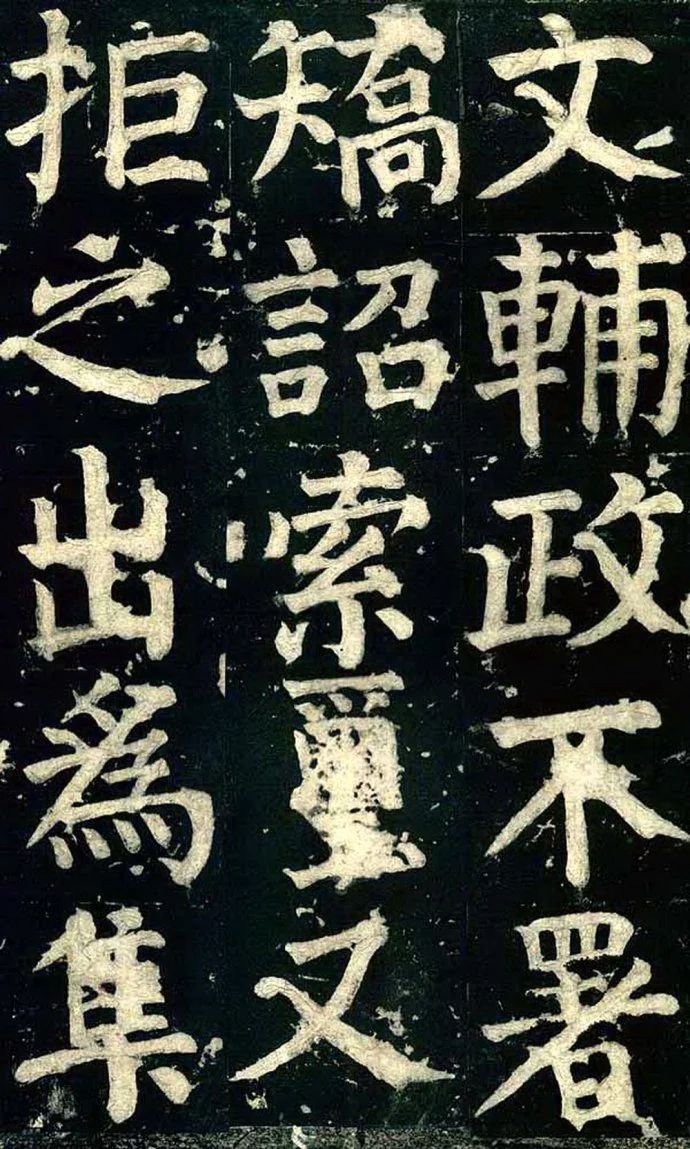 文輔政不署
矯詔索璽又
拒之出為集